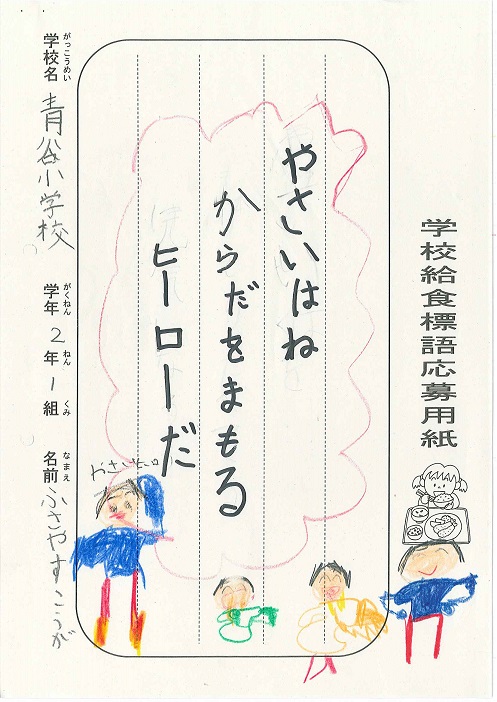 学校給食標語応募用紙
やさいはね
からだをまもる
ヒーローだ
がっこうめい
学校名 青谷小学校
がくねん ねん くみ
学年 2年1組
なまえ
名前 ふさやすこうが